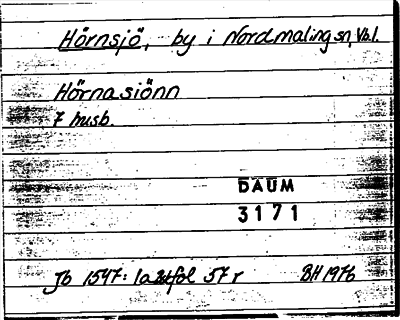 Hörnsjö, by i Nordmaling sn, Vb.l.
Hörnasiönn
7 husb.
DAUM
3171
Jb 1547: 1a fol 57 r BH 1976